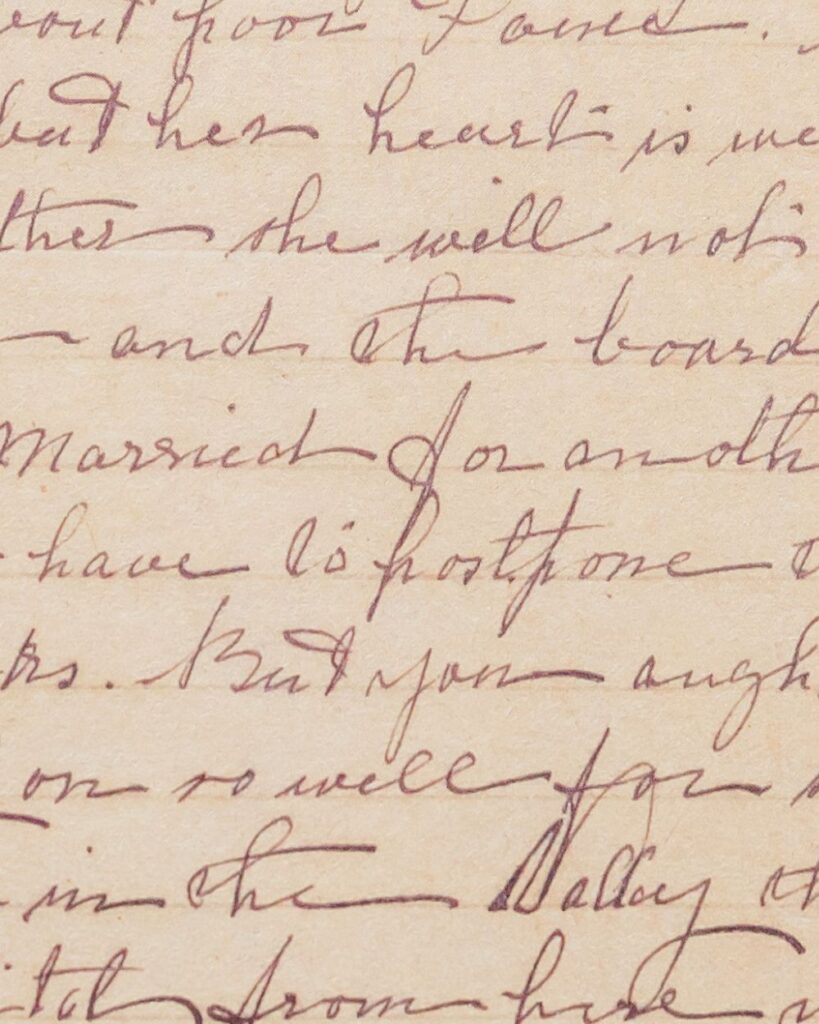 bout poor
but her heart is we
ther she will not
and the board
Married for anoth
have to postpone
rs. But you ough
on so well for
in the Valley th
from here